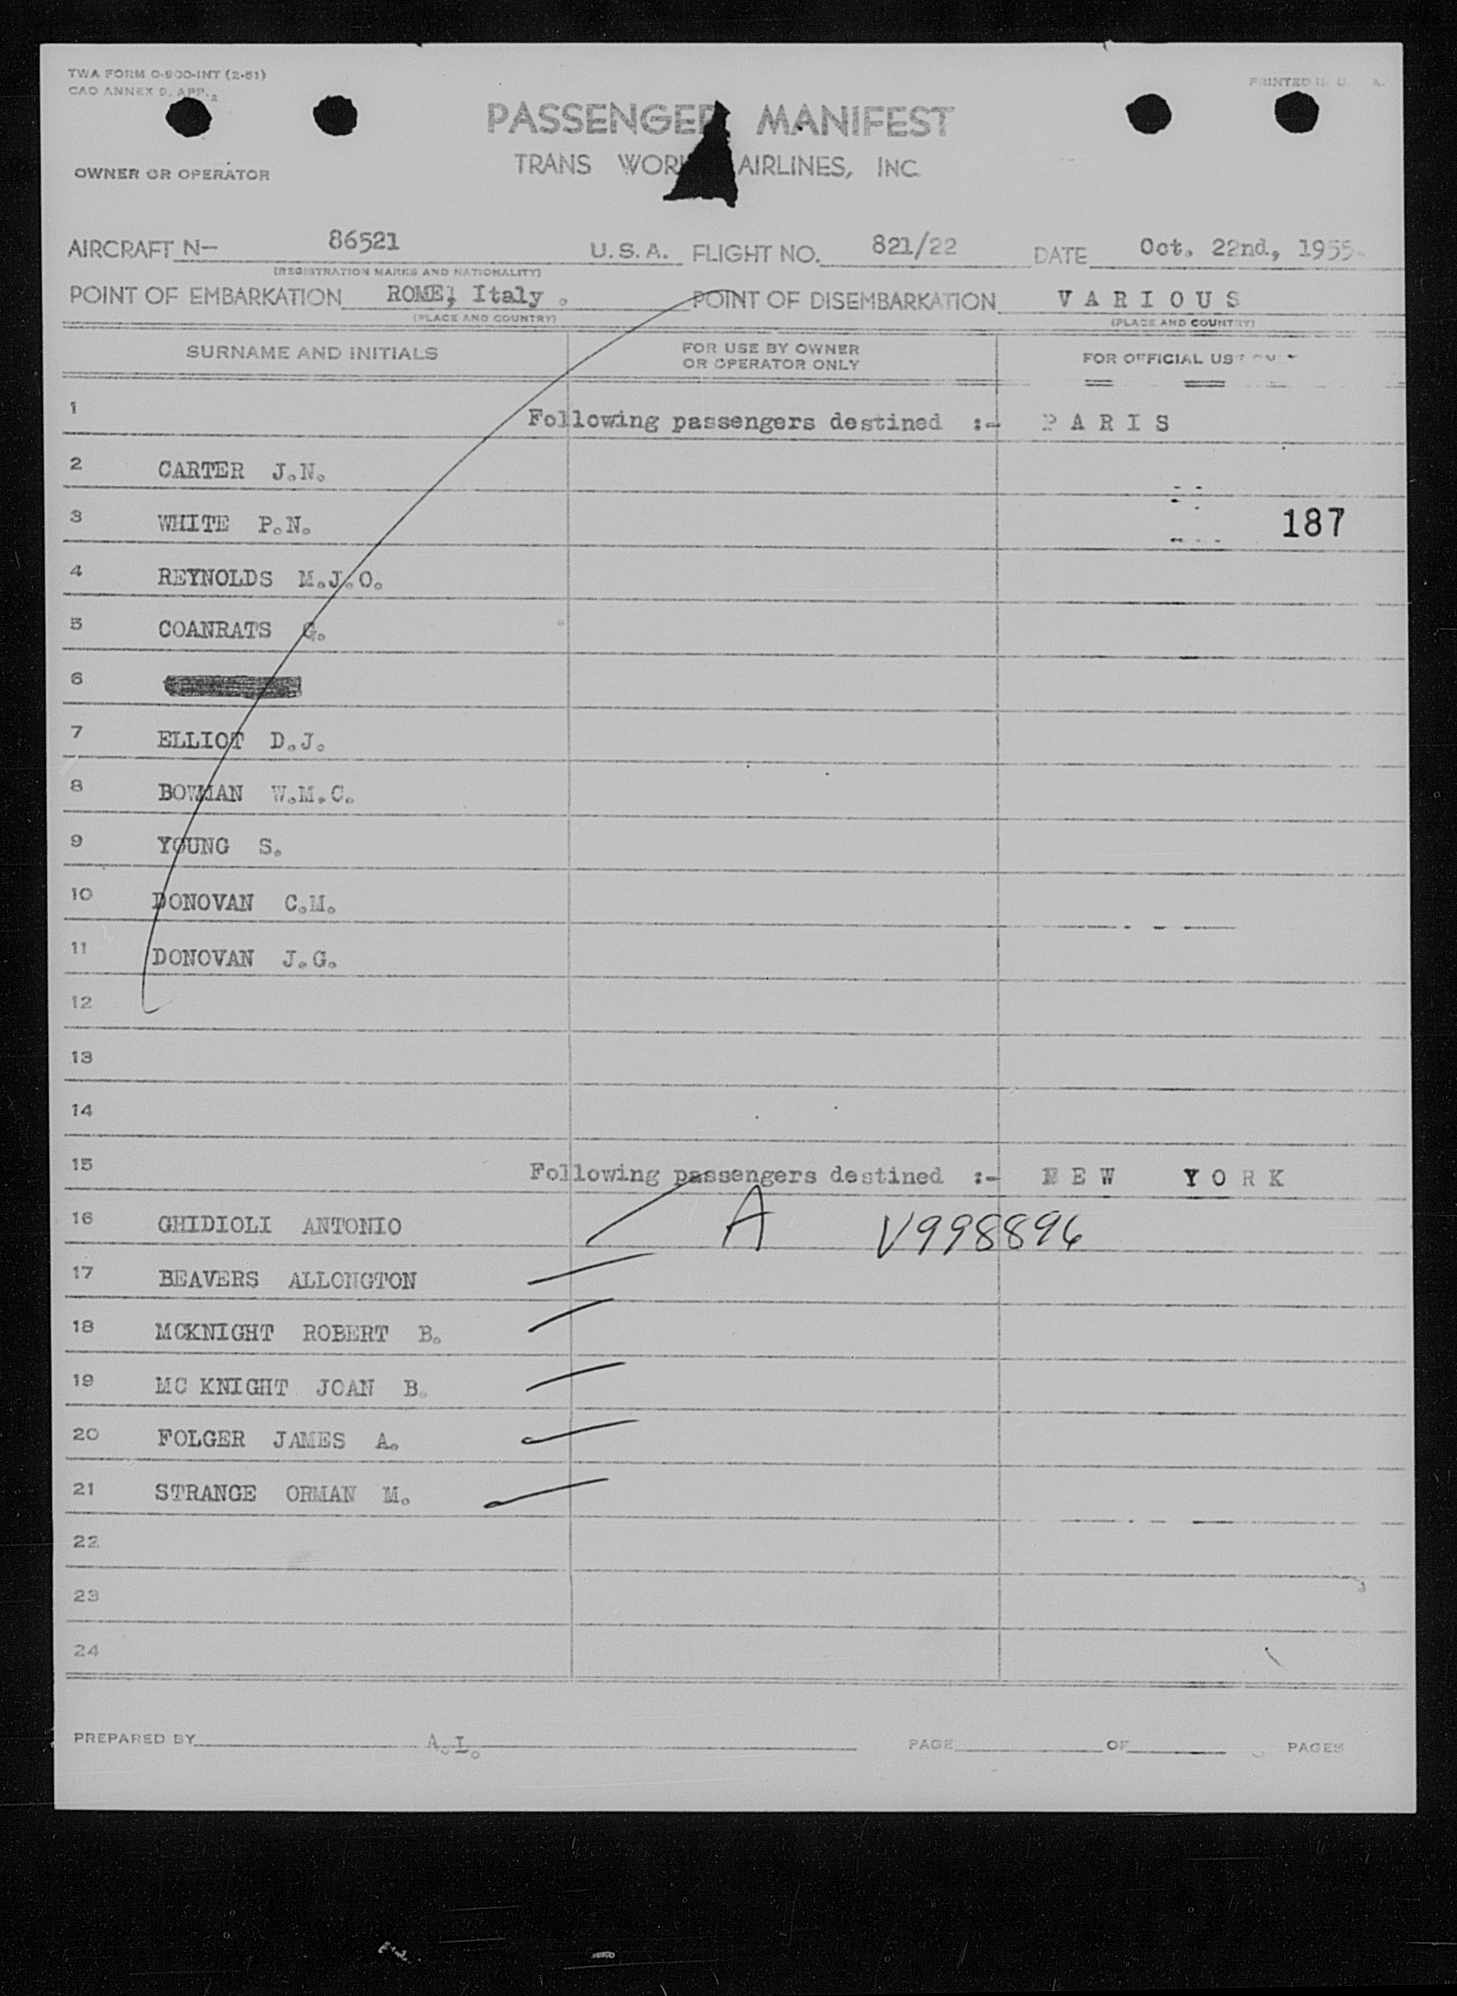 TWA FORM O-900-INT (2-51)
CAO ANNEX 9, APP. 2
PRINTED U. S. A.
PASSENGER MANIFEST
TRANS WORLD AIRLINES, INC.
OWNER OR OPERATOR
AIRCRAFT N- 86521 U.S.A. FLIGHT NO. 821/22 DATE Oct. 22nd., 1955.
(REGISTRATION MARKS AND NATIONALITY)
POINT OF EMBARKATION ROME, Italy . POINT OF DISEMBARKATION V A R I O U S
(PLACE AND COUNTRY) (PLACE AND COUNTRY)
SURNAME AND INITIALS FOR USE BY OWNER OR OPERATOR ONLY FOR OFFICIAL USE ONLY
1 Following passengers destined :- P A R I S
2 CARTER J.N.
3 WHITE P.N. 187
4 REYNOLDS M.J.O.
5 COANRATS G.
6
7 ELLIOT D.J.
8 BOWMAN W.M.C.
9 YOUNG S.
10 DONOVAN C.M.
11 DONOVAN J.G.
12
13
14
15 Following passengers destined :- N E W Y O R K
16 GHIDIOLI ANTONIO A V998896
17 BEAVERS ALLONGTON
18 MCKNIGHT ROBERT B.
19 MC KNIGHT JOAN B.
20 FOLGER JAMES A.
21 STRANGE ORMAN M.
22
23
24
PREPARED BY A.L. PAGE OF PAGES